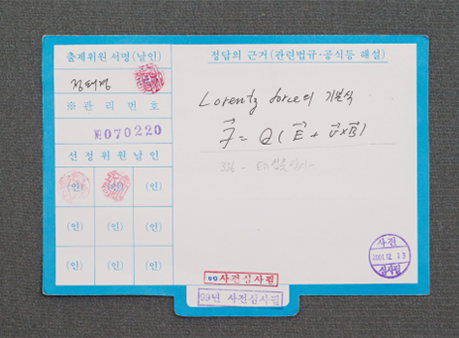 출제위원 서명(날인)
※ 관 리 번 호
№070220
선 정 위 원 날 인
(인) (인) (인)
(인) (인) (인)
(인) (인) (인)
정답의 근거(관련법규·공식등 해설)
Lorentz force의 기본식
F = Q ( E + v × B )
사전심사필
99년 사전심사필
사전
2001. 12. 13
심사필